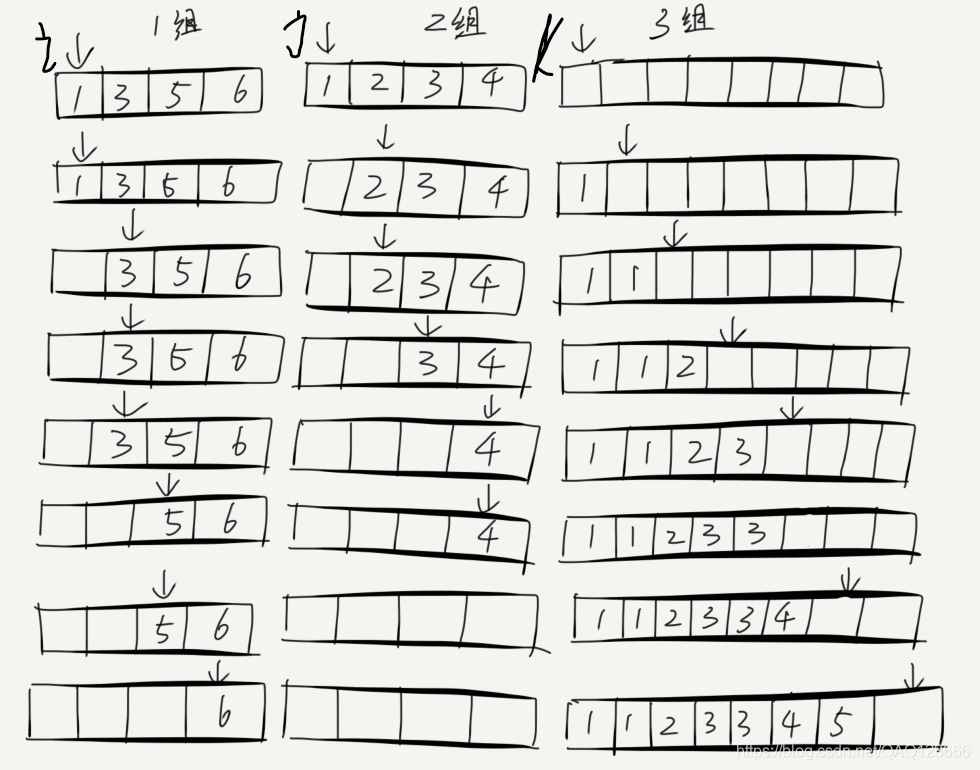 i 1组 J 2组 K 3组
1 3 5 6 1 2 3 4
1 3 5 6 2 3 4 1
3 5 6 2 3 4 1 1
3 5 6 3 4 1 1 2
3 5 6 4 1 1 2 3
5 6 4 1 1 2 3 3
5 6 1 1 2 3 3 4
6 1 1 2 3 3 4 5